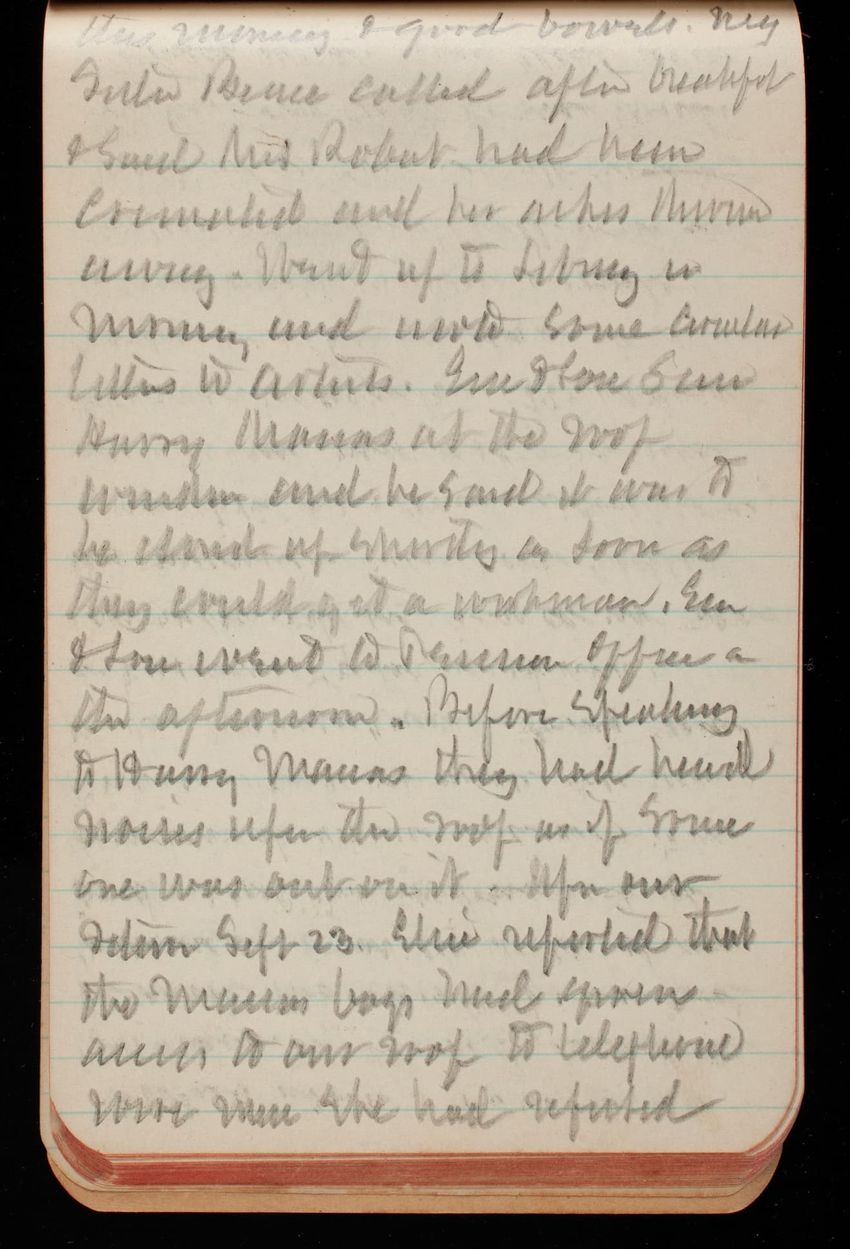 this morning & good bowels. My
Sister Bence called after breakfast
& said Mrs Robat had been
Cremated and her ashes thrown
away. Went up to Library in
Morning and wrote some circular
letters to artists. Em & Lou seen
Harry Macas at the roof
window and he said it was to
be closed up shortly as soon as
they could get a workman. Em
& Lou went to Pension Office in
the afternoon. Before speaking
to Harry Macas they had heard
noises upon the roof as if some
one was out on it. Upon our
return Sept 23. Elsie reported that
the Macas boys had given
access to our roof to telephone
wire men She had reported